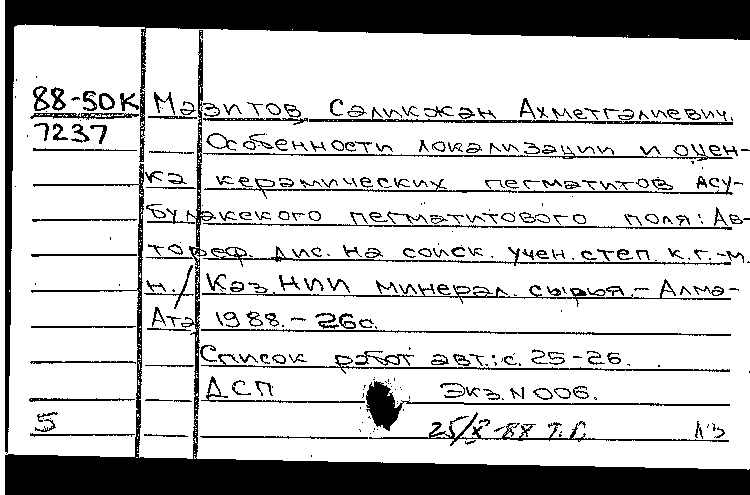 88-50К Мазитов Саликжан Ахметгалиевич.
7237 Особенности локализации и оцен-
ка керамических пегматитов Асу-
булакского пегматитового поля: Ав-
тореф. дис. на соиск. учен. степ. к.г.-м.
н./ Каз.НИИ минерал. сырья.- Алма-
Ата 1988.- 26с.
Список работ авт.: с. 25-26.
ДСП Экз. N 006.
5 25/X-88